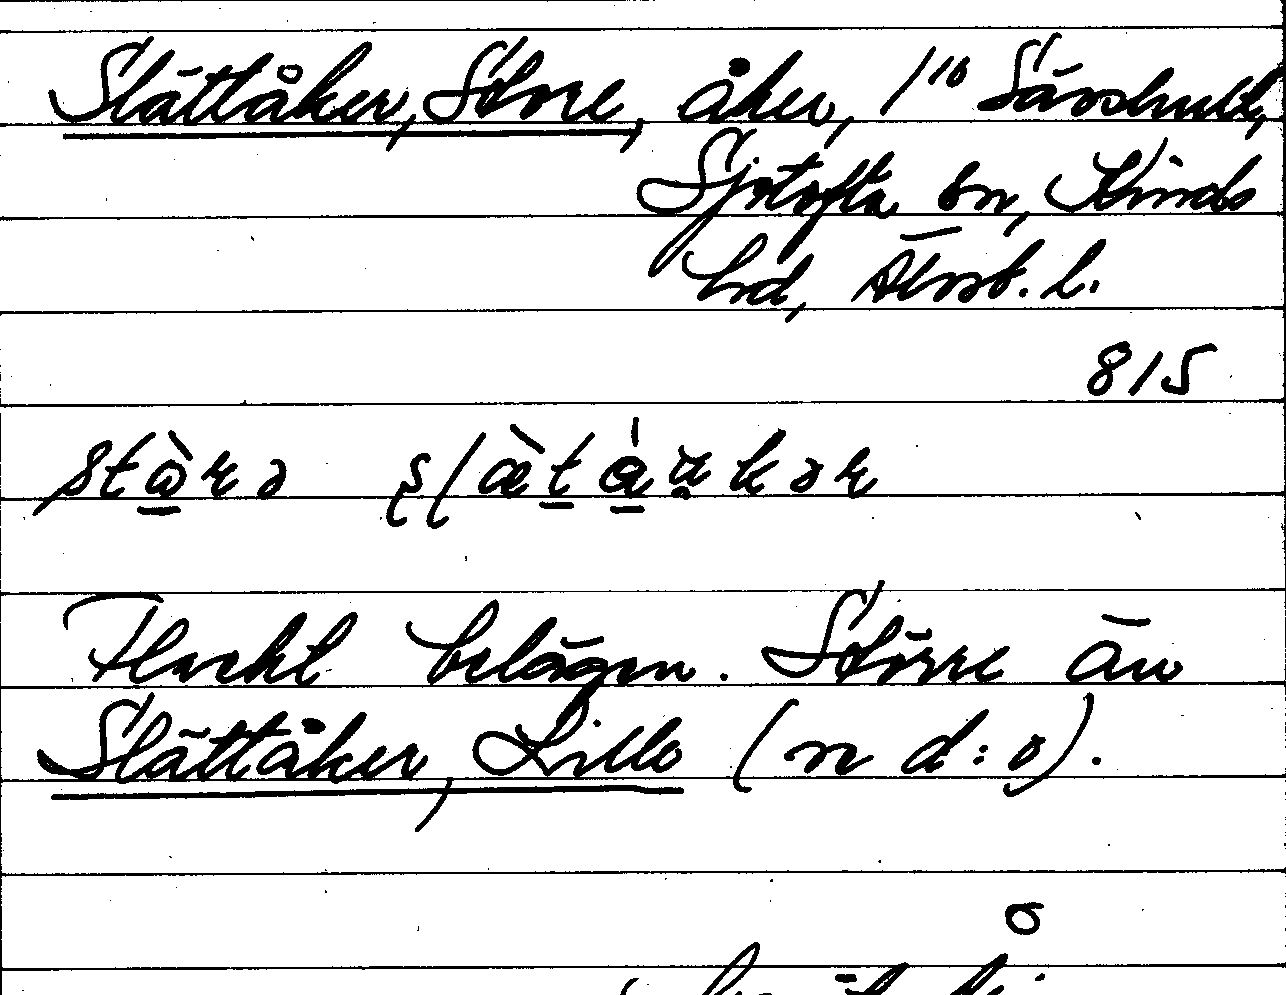 Slättåker, Store, åker, 1¹⁰ Sävshult,
Sjötofta sn, Kinds
hd, Älvsb. l.
815
Flackt belägen. Större än
Slättåker, Lille (n d:o).